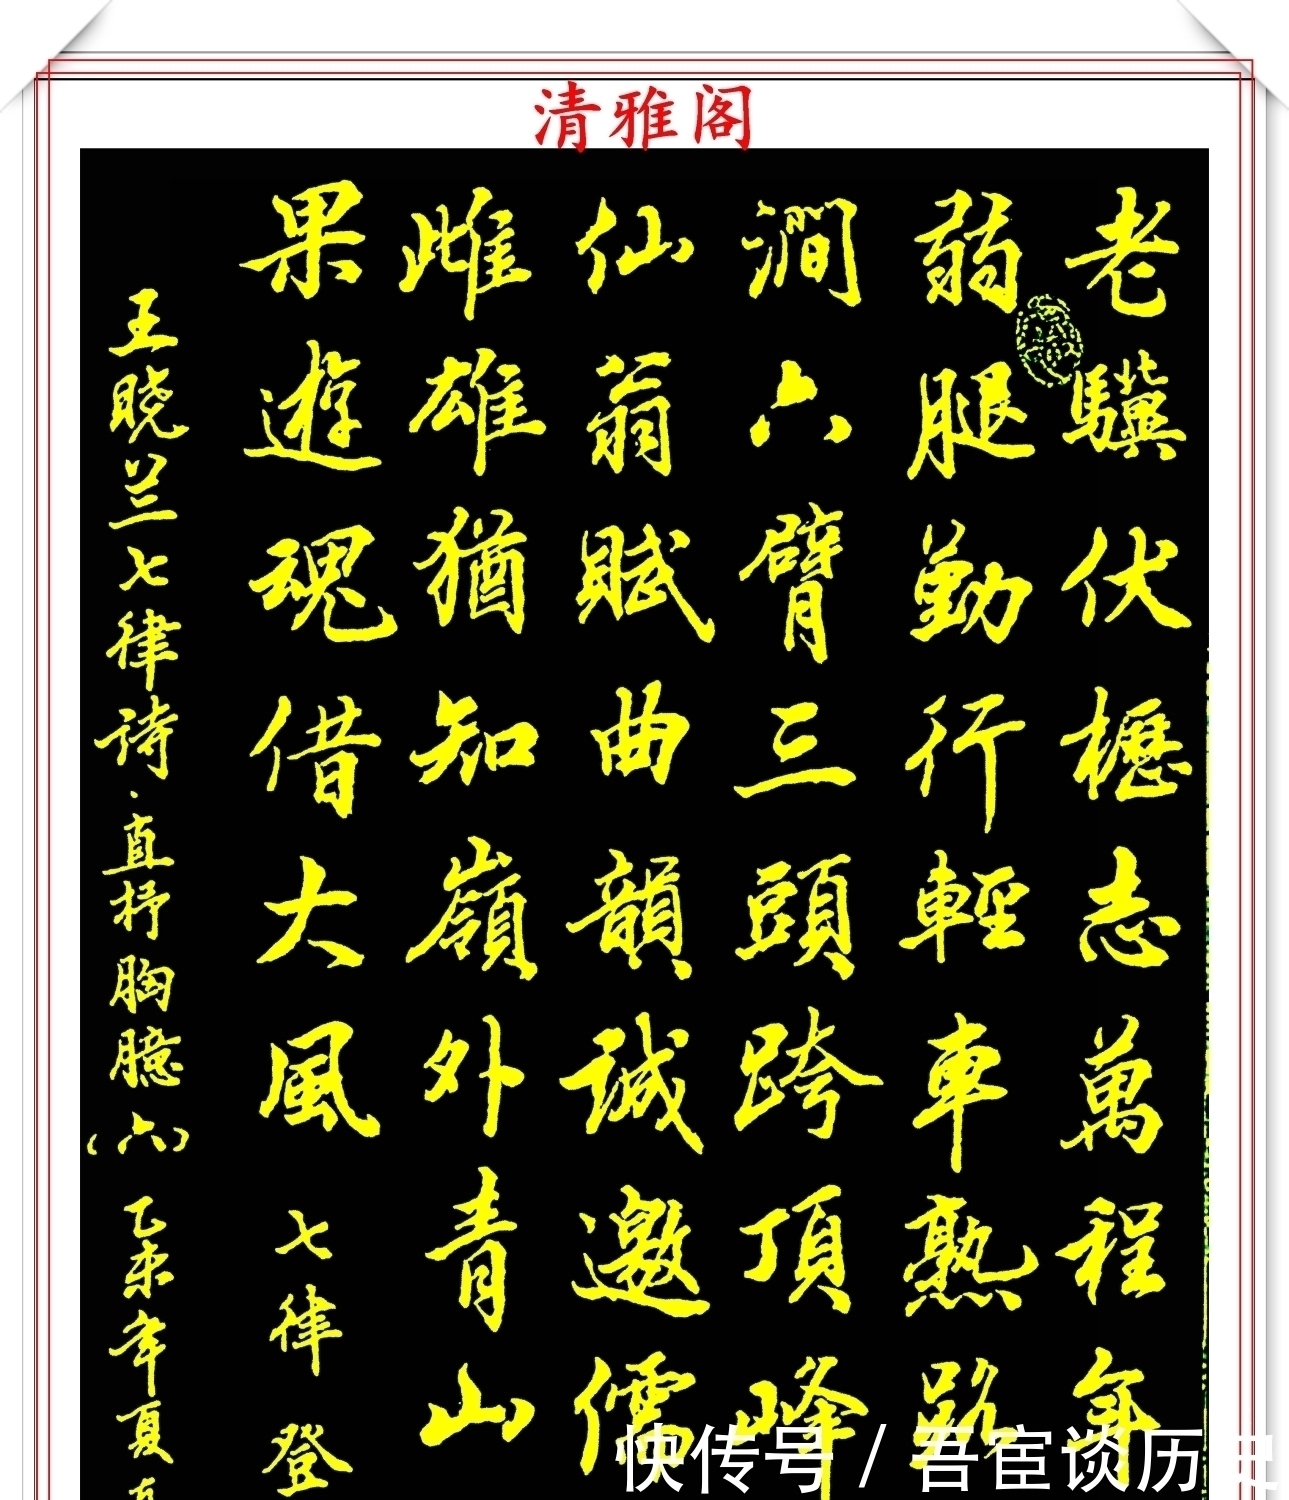 清雅阁
老驥伏櫪志萬程年
弱腿勤行輕車熟路
澗六臂三頭跨頂峰
仙翁賦曲韻誠邀儒
雌雄猶知嶺外青山
果遊魂借大風
七律登
王晓兰七律诗·直抒胸臆(六)
乙未年夏
快传号/吾宦谈历史